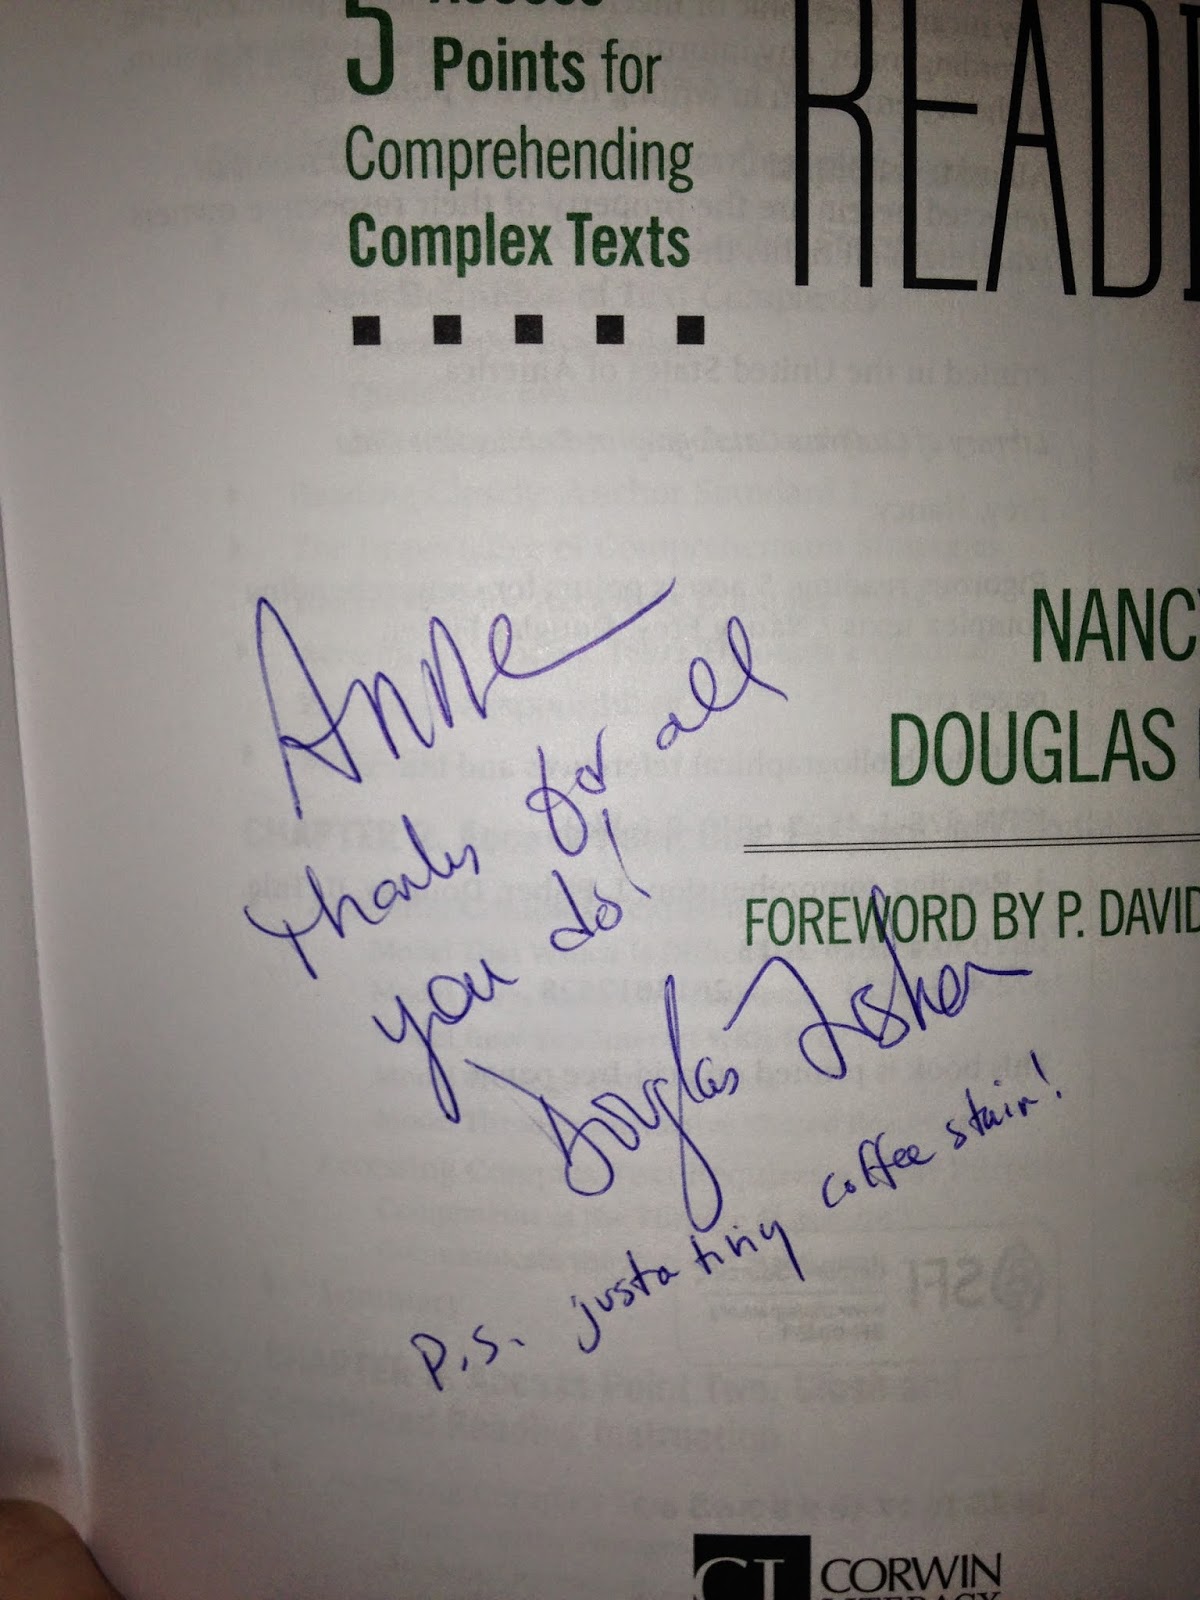 5 Access
Points for
Comprehending
Complex Texts
READI
NANCY
DOUGLAS
FOREWORD BY P. DAVID
Anne
thanks for all
you do!
Douglas Fisher
P.S. just a tiny coffee stain!
CL CORWIN
LITERACY